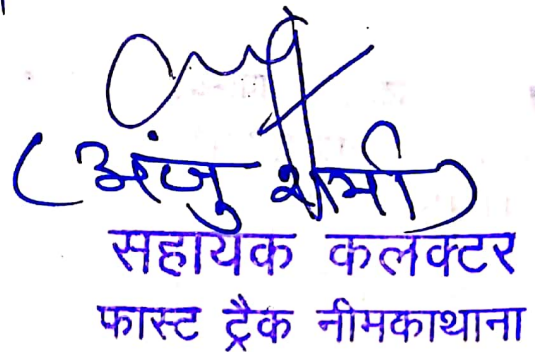 (अंजु शर्मा)
सहायक कलक्टर
फास्ट ट्रैक नीमकाथाना